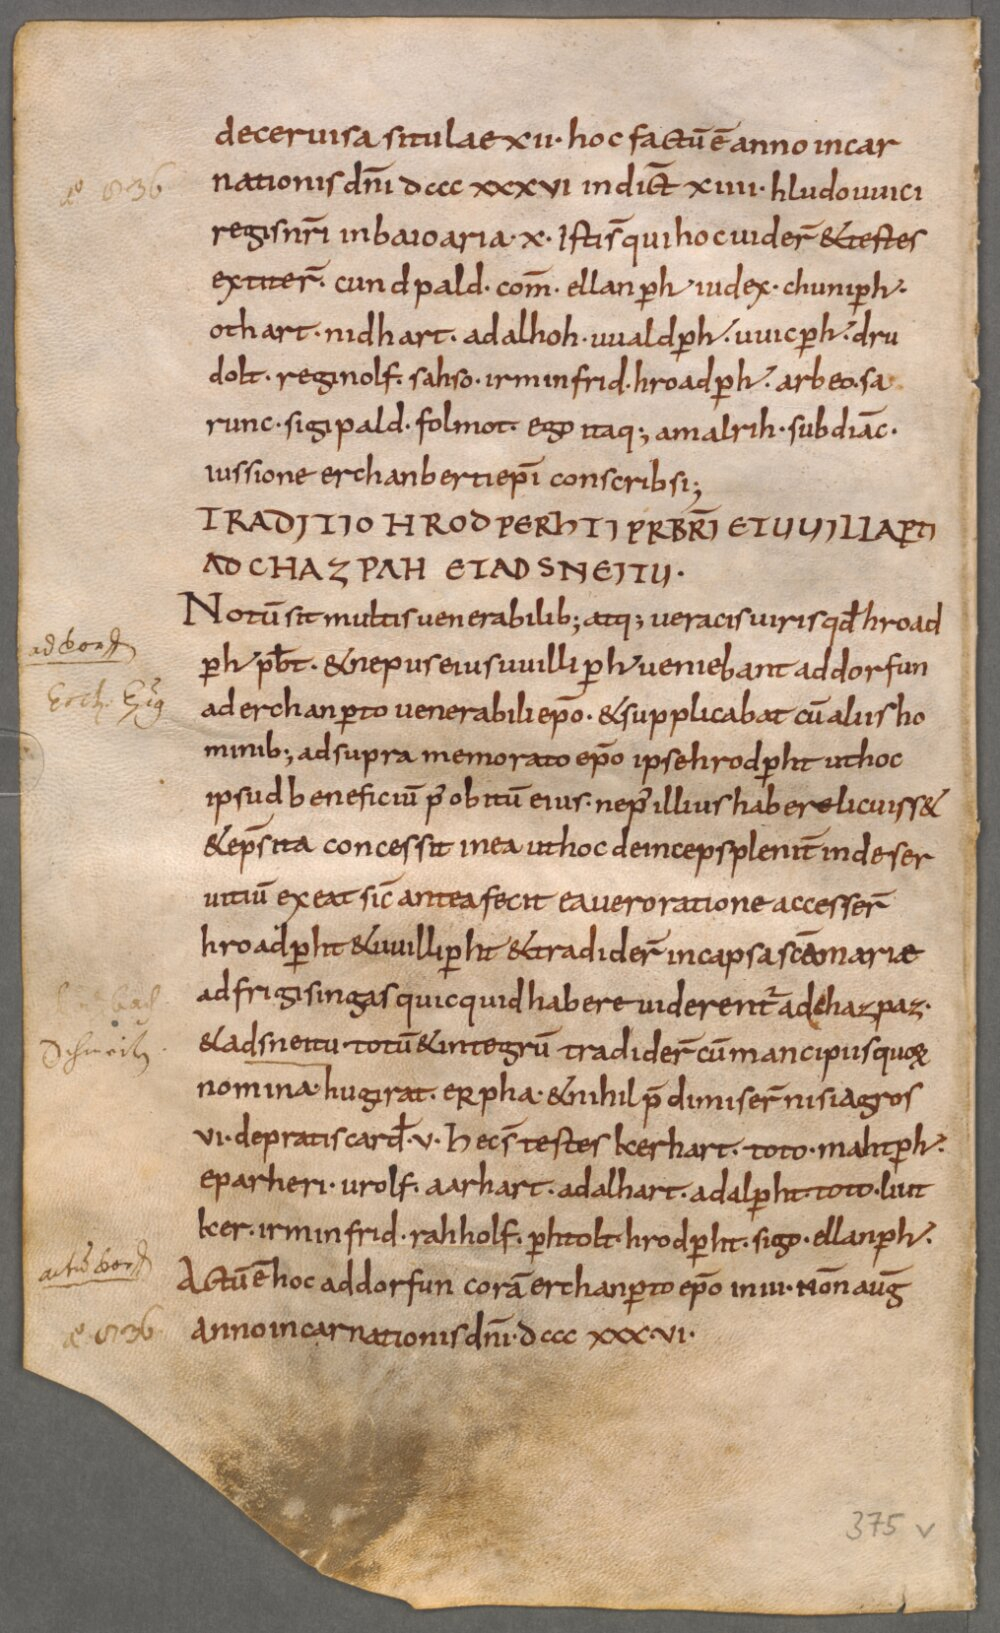 de ceruisa situlae xii· hoc factū ē anno incar
nationis dn̄i dccc xxxvi indict̄ xiiii· hludouuici
regis nr̄i in baioaria· x· Isti s̄ qui hoc uider̄ & testes
extiter̄· cundpald· com̄· ellanꝑh' iudex· chuniꝑh'·
othart· nidhart· adalhoh· uualdꝑh'· uuicꝑh'· dru
dolt· reginolf· sahso· irminfrid· hroadꝑh'· arbeo· sa
runc· sigipald· folmot· ego itaq; amalrih· subdiāc·
iussione erchanberti ep̄i conscribsi;
TRADITIO HRODPERHTI PRBR̄I ET UUILLAPTI
AD CHAZPAH ET AD SNEITU·
Notū sit multis uenerabilib; atq; ueracis uiris qđ hroad
ꝑh' pƀt· & nepus eius uuilliꝑh' ueniebant ad dorfun
ad erchanꝑto uenerabili ep̄o· & supplicabat cū aliis ho
minib; ad supra memorato ep̄o ipse hrodꝑht ut hoc
ipsud beneficiū p' obitū eius· nep' illius habere licuiss&
& ep̄s ita concessit in ea ut hoc deinceps plenit̄ inde ser
uitiū exeat sic̄ antea fecit ea uero ratione accesser̄
hroadꝑht & uuilliꝑht & tradider̄ in capsa scāe mariae
ad frigisingas quicquid habere uiderent' ad chazpaz·
& ad sneitu· totū & integrū tradider̄ cū mancipiis quoꝝ
nomina· hugirat· erpha· & nihil p̄dimiser̄ nisi agros
vi· de pratis carđ· v· Hec s̄ testes kerhart· toto· mahtꝑh'·
eparheri· urolf· aarhart· adalhart· adalꝑht· toto· liut
ker· irminfrid· rahholf· ꝑhtolt· hrodꝑht· sigo· ellanꝑh'·
Actū ē hoc ad dorfun corā erchanꝑto ep̄o in iii· nōn auḡ
anno incarnationis dn̄i· dccc xxx·vi·
375 v